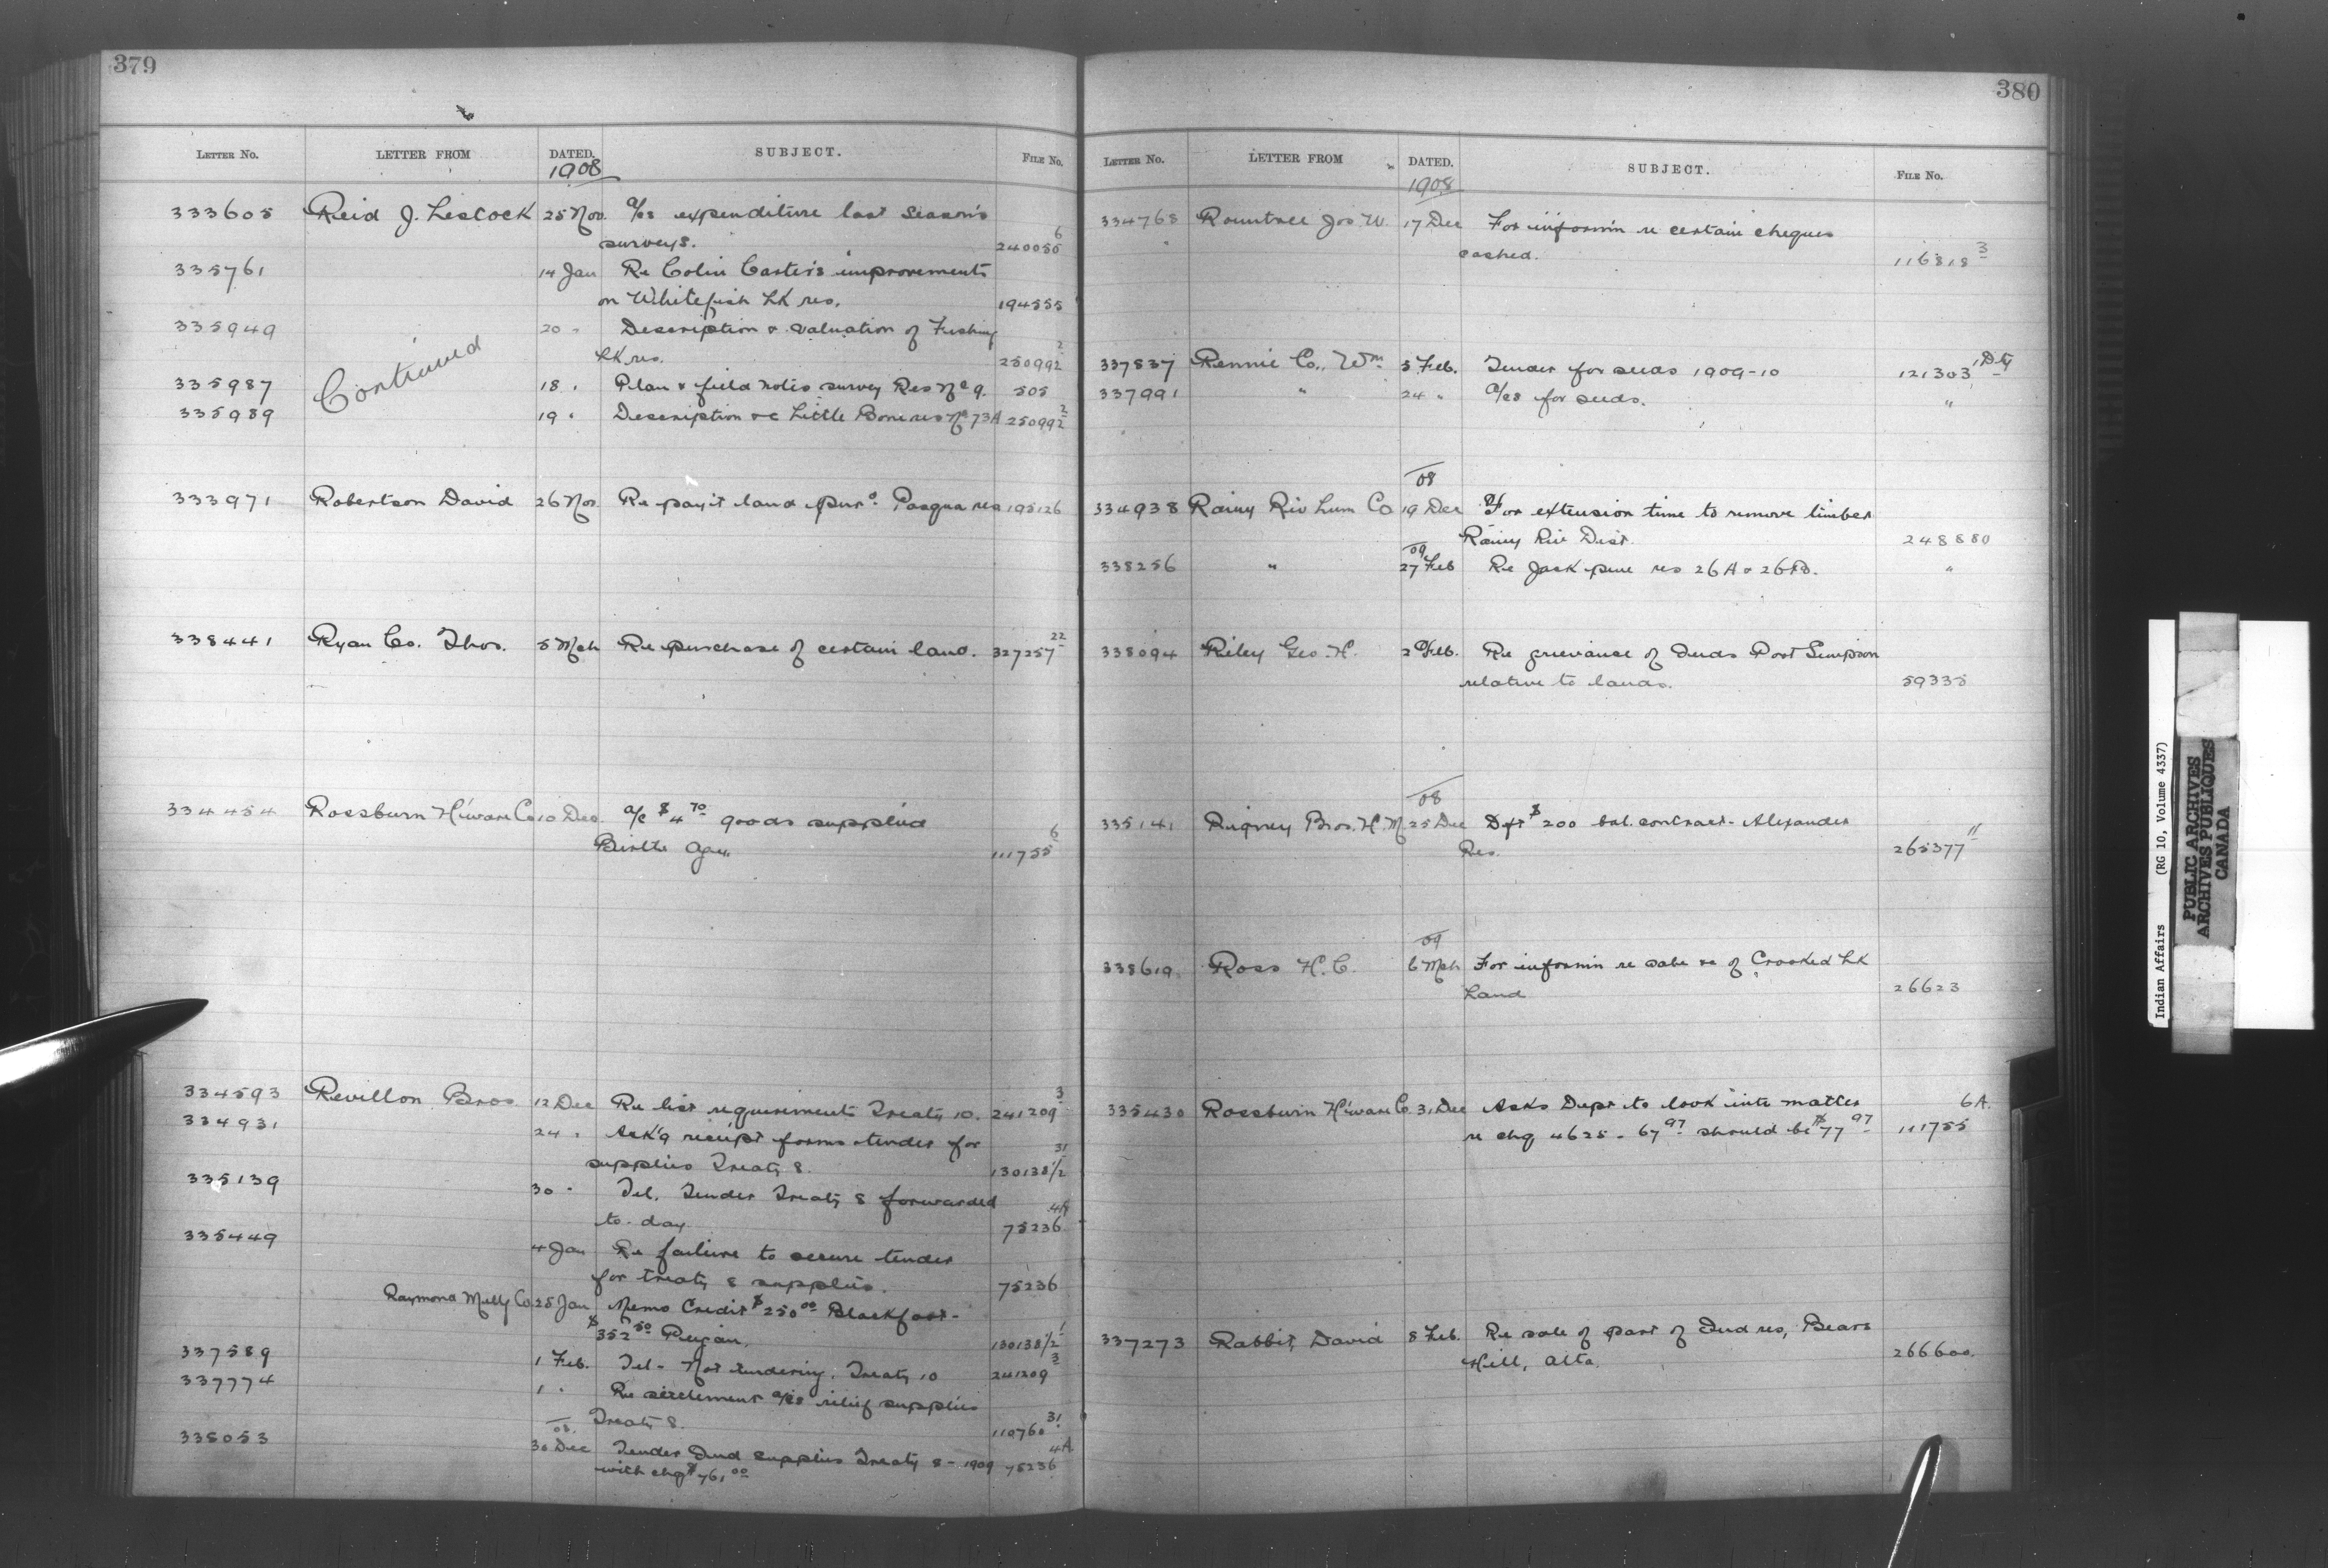 379
LETTER No. LETTER FROM DATED. SUBJECT. FILE No.
1908
333605 Reid J. Lestock 25 Nov. a/cs expenditure last season's
surveys. 240055 6
335761 14 Jan Re Colin Carter's improvements
on Whitefish Lk res. 194555
335949 20 " Description & valuation of Fishing
Lk res. 250992 2
Continued
335987 18 " Plan & field notes survey Res No 9. 505
335989 19 " Description &c Little Bone res No 73A 250992 2
333971 Robertson David 26 Nov Re pay't land pur d Pasqua res 195126
338441 Ryan Co. Thos. 5 Mch Re purchase of certain land. 327257 22
334454 Rossburn H'ware Co 10 Dec. a/c $4 70 goods supplied
Birtle Agcy. 111755 6
334593 Revillon Bros 12 Dec Re list requirements Treaty 10. 241209 3
334931 24 " Ack'g receipt forms tender for
supplies Treaty 8. 130138 1/2 31
335139 30 " Tel. Tender Treaty 8 forwarded
to-day. 75236 4A
335449 4 Jan Re failure to secure tender
for treaty 8 supplies. 75236
Raymond Mill'g Co 25 Jan Memo Credit $250 00 Blackfoot -
$352 50 Peigan. 130138 1/2 1
337589 1 Feb. Tel - Not tendering. Treaty 10 241209 3
337774 1 " Re settlement a/cs relief supplies
Treaty 8. 110760 31
338053 08 30 Dec Tender Ind supplies Treaty 8 - 1909
with chq $761 00 75236 4A
380
LETTER No. LETTER FROM DATED. SUBJECT. FILE No.
1908
334768 Rountree Jos W. 17 Dec For inform'n re certain cheques
cashed. 116818 3
337837 Rennie Co., Wm 5 Feb. Tender for seeds 1909-10 121303
337991 " 24 " a/cs for seeds. "
08
334938 Rainy Riv Lum Co 19 Dec For extension time to remove timber
Rainy Riv Dist. 248880
09
338256 " 27 Feb Re Jack pine res 26A & 26B. "
338094 Riley Geo. H. Feb. Re grievance of Inds Port Simpson
relative to lands. 59335
08
335141 Rigney Bros. H. M 25 Dec Dft $200 bal. contract - Alexander
Res. 265377 11
09
338619 Ross H. C. 6 Mch For inform'n re sale &c of Crooked Lk
Land 26623
335430 Rossburn H'ware C. 31 Dec Asks Dept to look into matter 6A.
re chq 4625 - 67 97 should be $77 97 111755
337273 Rabbit, David 8 Feb. Re sale of part of Ind res, Bears
Hill, Alta. 266600.
Indian Affairs (RG 10, Volume 4337)
PUBLIC ARCHIVES
ARCHIVES PUBLIQUES
CANADA